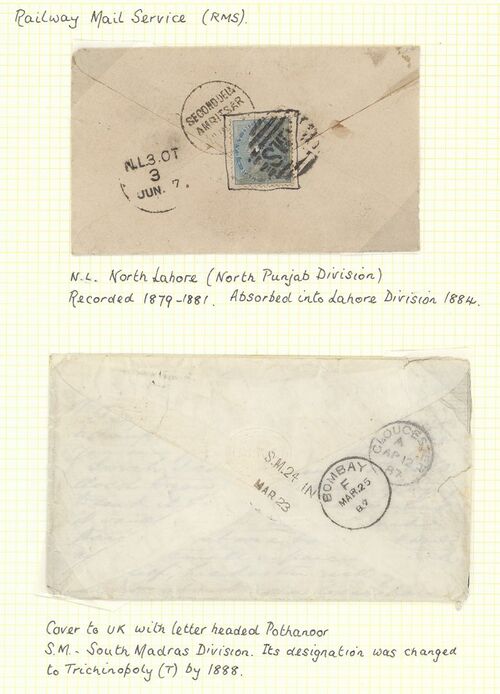 Railway Mail Service (RMS).
SECOND DELY
AMRITSAR
3
JUN. 7.
N.L. North Lahore (North Punjab Division)
Recorded 1879-1881. Absorbed into Lahore Division 1884.
GLOUCESTER
A
AP 12
87
S.M. 24 IN
MAR 23
BOMBAY
F
MAR. 25
87
Cover to UK with letter headed Pothanoor
S.M. - South Madras Division. Its designation was changed
to Trichinopoly (T) by 1888.